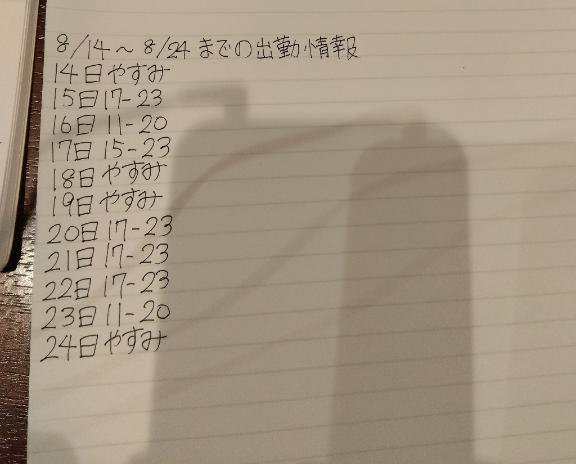 8/14～8/24までの出勤情報
14日やすみ
15日17-23
16日11-20
17日15-23
18日やすみ
19日やすみ
20日17-23
21日17-23
22日17-23
23日11-20
24日やすみ